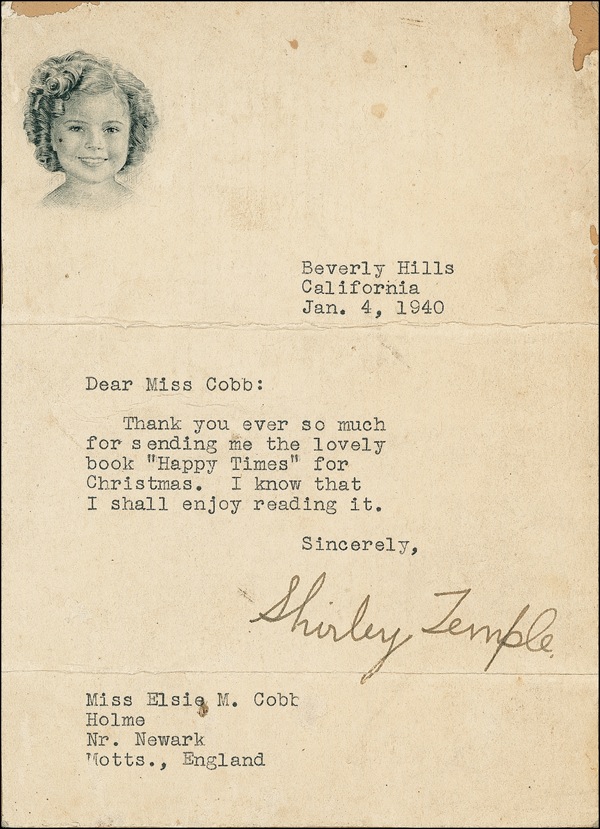 Beverly Hills
California
Jan. 4, 1940
Dear Miss Cobb:
Thank you ever so much
for sending me the lovely
book "Happy Times" for
Christmas. I know that
I shall enjoy reading it.
Sincerely,
Shirley Temple
Miss Elsie M. Cobb
Holme
Nr. Newark
Notts., England